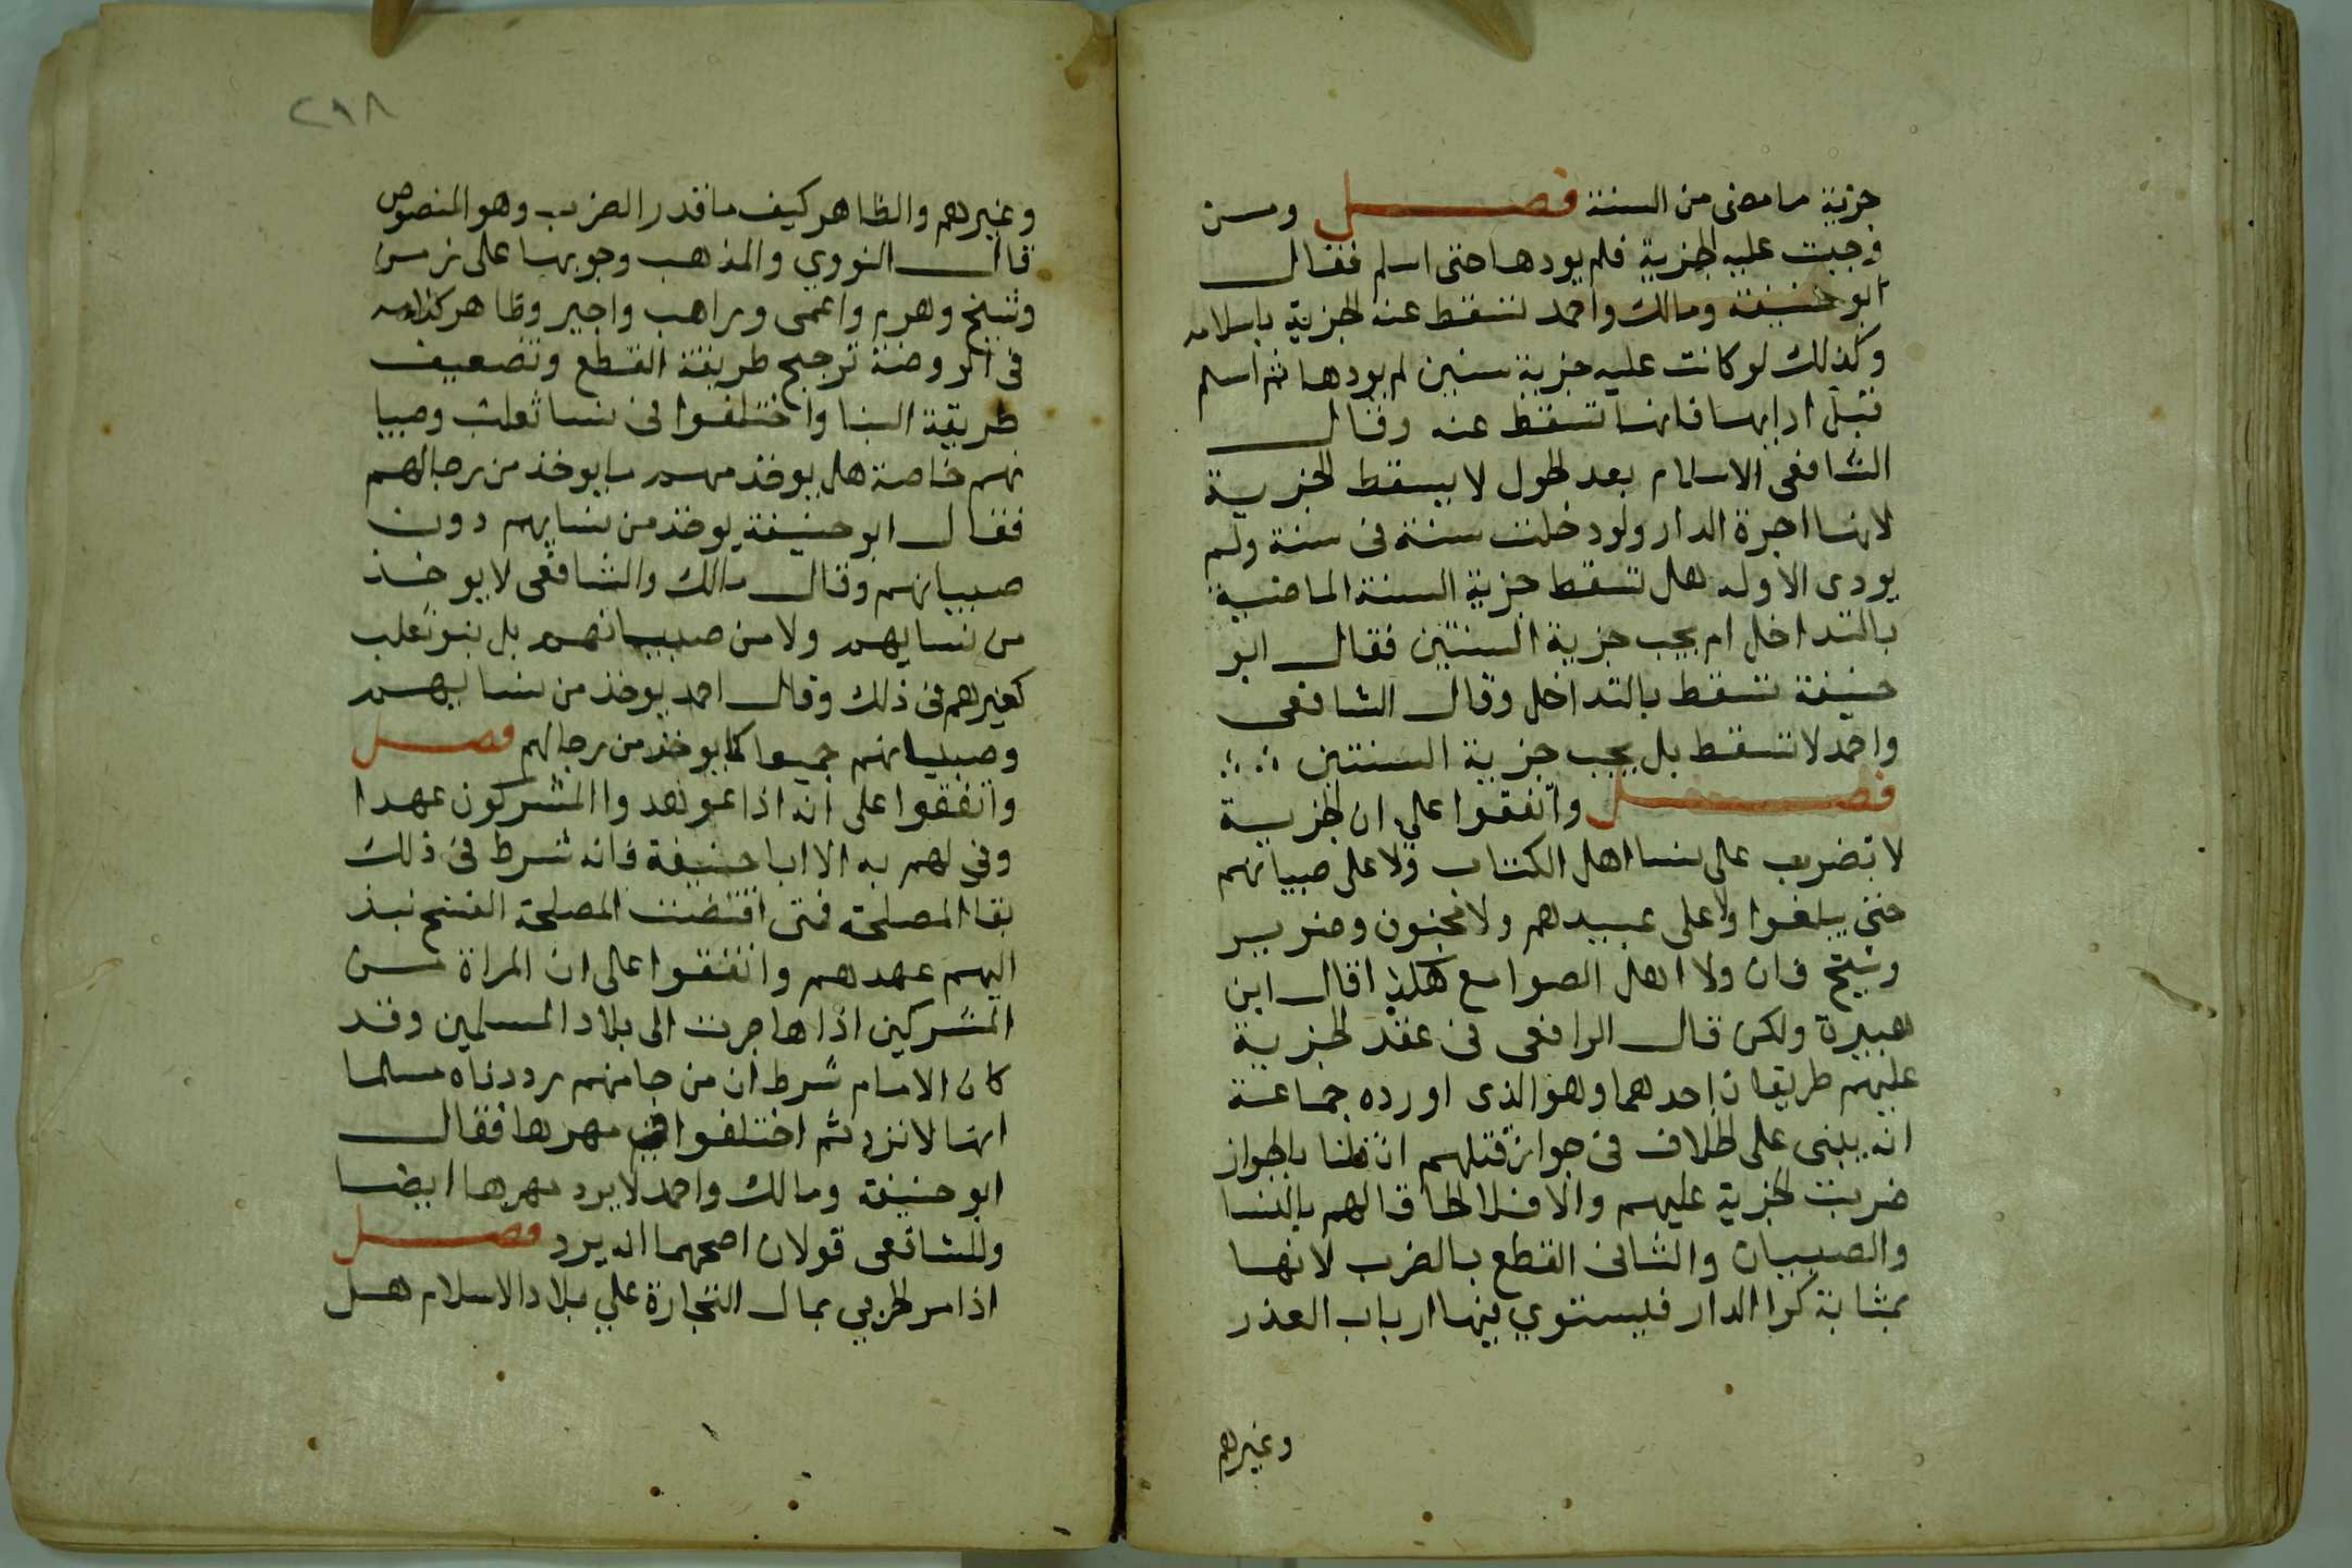 جزية ما مضى من السنة فصل ومن
وجبت عليه الجزية فلم يودها حتى اسلم فقال
ابو حنيفة ومالك واحمد تسقط عنه الجزية باسلامه
وكذلك لو كانت عليه جزية سنين لم يودها ثم اسلم
قبل ادايها فانها تسقط عنه وقال
الشافعي الاسلام بعد الحول لا يسقط الجزية
لانها اجرة الدار ولو دخلت سنة في سنة ولم
يودى الاوله هل تسقط جزية السنة الماضية
بالتداخل ام يجب جزية السنتين فقال ابو
حنيفة تسقط بالتداخل وقال الشافعى
واحمد لا تسقط بل يجب جزية السنتين
فصل واتفقوا على ان الجزية
لا تضرب على نسا اهل الكتاب ولا على صبيانهم
حتى يبلغوا ولا على عبيدهم ولا مجنون وضرير
وشيخ فان ولا اهل الصوامع هكذا قال ابن
هبيرة ولكن قال الرافعى فى عقد الجزية
عليهم طريقان احدهما وهو الذى اورده جماعة
انه يبنى على الخلاف فى جواز قتلهم ان قلنا بالجواز
ضربت الجزية عليهم والا فلا الحاقا لهم بالنسا
والصبيان والثانى القطع بالضرب لانها
بمثابة كرا الدار فيستوي فيها ارباب العذر
وغيرهم
٢٩٨
وغيرهم والظاهر كيف ما قدر الضرب وهو المنصوص
قال النووي والمذهب وجوبها على زمن
وشيخ وهرم واعمى وراهب واجير وظاهر كلامه
فى الروضة ترجيح طريقة القطع وتضعيف
طريقة البنا واختلفوا فى نسا ثعلب وصبيا
نهم خاصة هل يوخذ منهم ما يوخذ من رجالهم
فقال ابو حنيفة يوخذ من نسايهم دون
صبيانهم وقال مالك والشافعى لا يوخذ
من نسايهم ولا من صبيانهم بل بنو ثعلب
كغيرهم فى ذلك وقال احمد يوخذ من نسايهم
وصبيانهم جميعا كما يوخذ من رجالهم فصل
واتفقوا على انه اذا عوهدوا المشركون عهدا
وفي لهم به الا ابا حنيفة فانه شرط فى ذلك
بقا المصلحة فمتى اقتضت المصلحة الفسخ نبذ
اليهم عهدهم واتفقوا على ان المراة من
المشركين اذا هاجرت الى بلاد المسلمين وقد
كان الامام شرط ان من جا منهم رددناه مسلما
انها لا ترد ثم اختلفوا فى مهرها فقال
ابو حنيفة ومالك واحمد لا يرد مهرها ايضا
وللشافعى قولان اصحهما انه يرد فصل
اذا مر الحربي بمال التجارة علي بلاد الاسلام هل